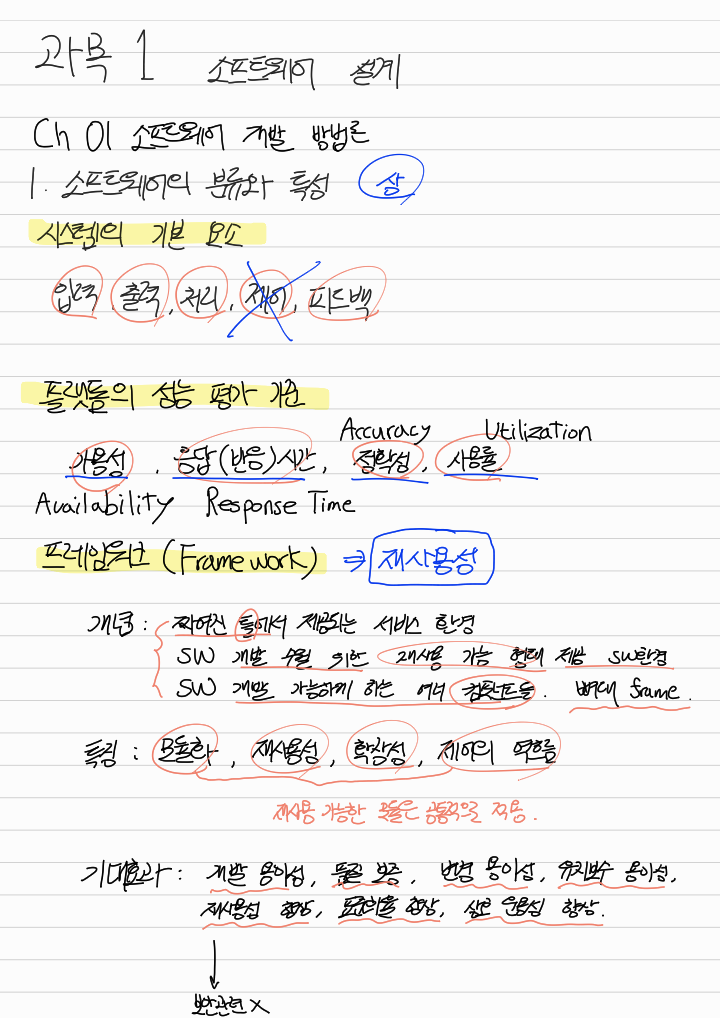 과목 1 소프트웨어 설계
Ch 01 소프트웨어 개발 방법론
1. 소프트웨어의 분류와 특성 상
시스템의 기본 요소
입력, 출력, 처리, 제어, 피드백
플랫폼의 성능 평가 기준
Accuracy Utilization
가용성, 응답(반응)시간, 정확성, 사용률
Availability Response Time
프레임워크 (Framework) ⇒ 재사용성
개념 : 짜여진 틀에서 제공되는 서비스 환경
SW 개발 수월 위한 재사용 가능 형태 제공 SW환경
SW 개발 가능하게 하는 여러 컴포넌트들. 뼈대 frame.
특징 : 모듈화, 재사용성, 확장성, 제어의 역흐름
재사용 가능한 모듈은 공통적으로 적용.
기대효과 : 개발 용이성, 품질 보증, 변경 용이성, 유지보수 용이성,
재사용성 향상, 표준화율 향상, 상호 운용성 향상.
↓
보안관련 X